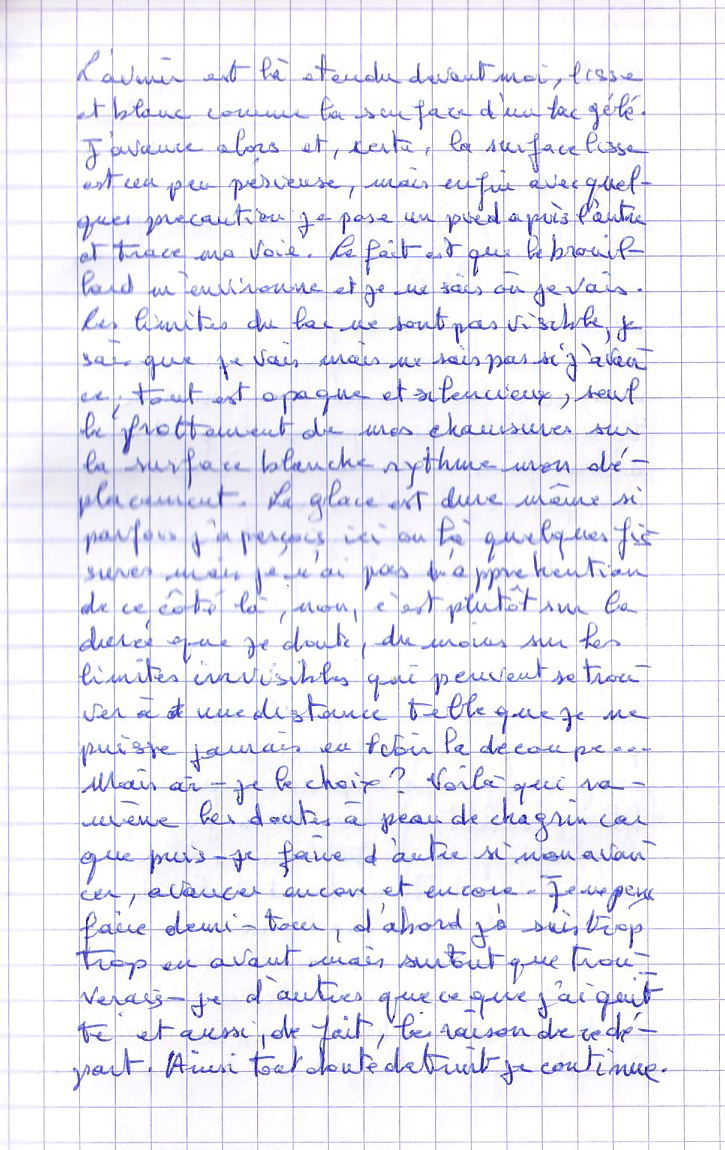 L'avenir est là étendu devant moi, lisse
et blanc comme la surface d'un lac gelé.
J'avance alors et, certe, la surface lisse
est un peu périeuse, mais enfin avec quel-
ques precaution je pose un pied après l'autre
et trace ma voie. Le fait est que le brouil-
lard m'environne et je ne sais où je vais.
Les limites du lac ne sont pas visible, je
sais que je vais mais ne sais pas si j'avan-
ce, tout est opaque et silencieux, seul
le frottement de mes chaussures sur
la surface blanche rythme mon dé-
placement. La glace est dure même si
parfois j'aperçois ici ou là quelques fis-
sures mais je n'ai pas d'apprehention
de ce côté là, non, c'est plutôt sur la
durée que je doute, du moins sur les
limites invisibles qui peuvent se trou-
ver à une distance telle que je ne
puisse jamais en voir la découpe...
Mais ai-je le choix? Voilà qui ra-
mène les doutes à peau de chagrin car
que puis-je faire d'autre si non avan-
cer, avancer encore et encore. Je ne peux
faire demi-tour, d'abord je suis trop
trop en avant mais surtout que trou-
verais-je d'autres que ce que j'ai quit-
té et aussi, de fait, les raison de redé-
part. Ainsi tout doute détruit je continue.